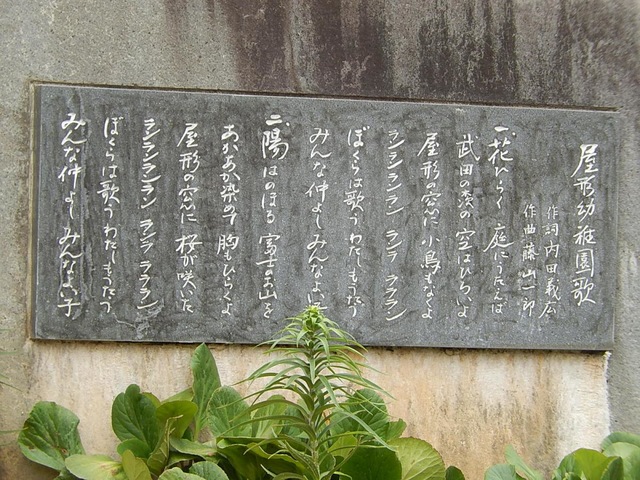 屋形幼稚園歌
作詞 内田義広
作曲 藤山一郎
一、花ひらく 庭にうたえば
武田の森の 空はひろいよ
屋形の窓に 小鳥もなくよ
ランランランラン ランラ ララランン
ぼくらは歌う わたしもうたう
みんな仲よし みんなよい子
二、陽はのぼる 富士のお山を
あかあか染めて 胸もひらくよ
屋形の窓に 桜が咲いた
ランランランラン ランラ ララランン
ぼくらは歌う わたしもうたう
みんな仲よし みんなよい子